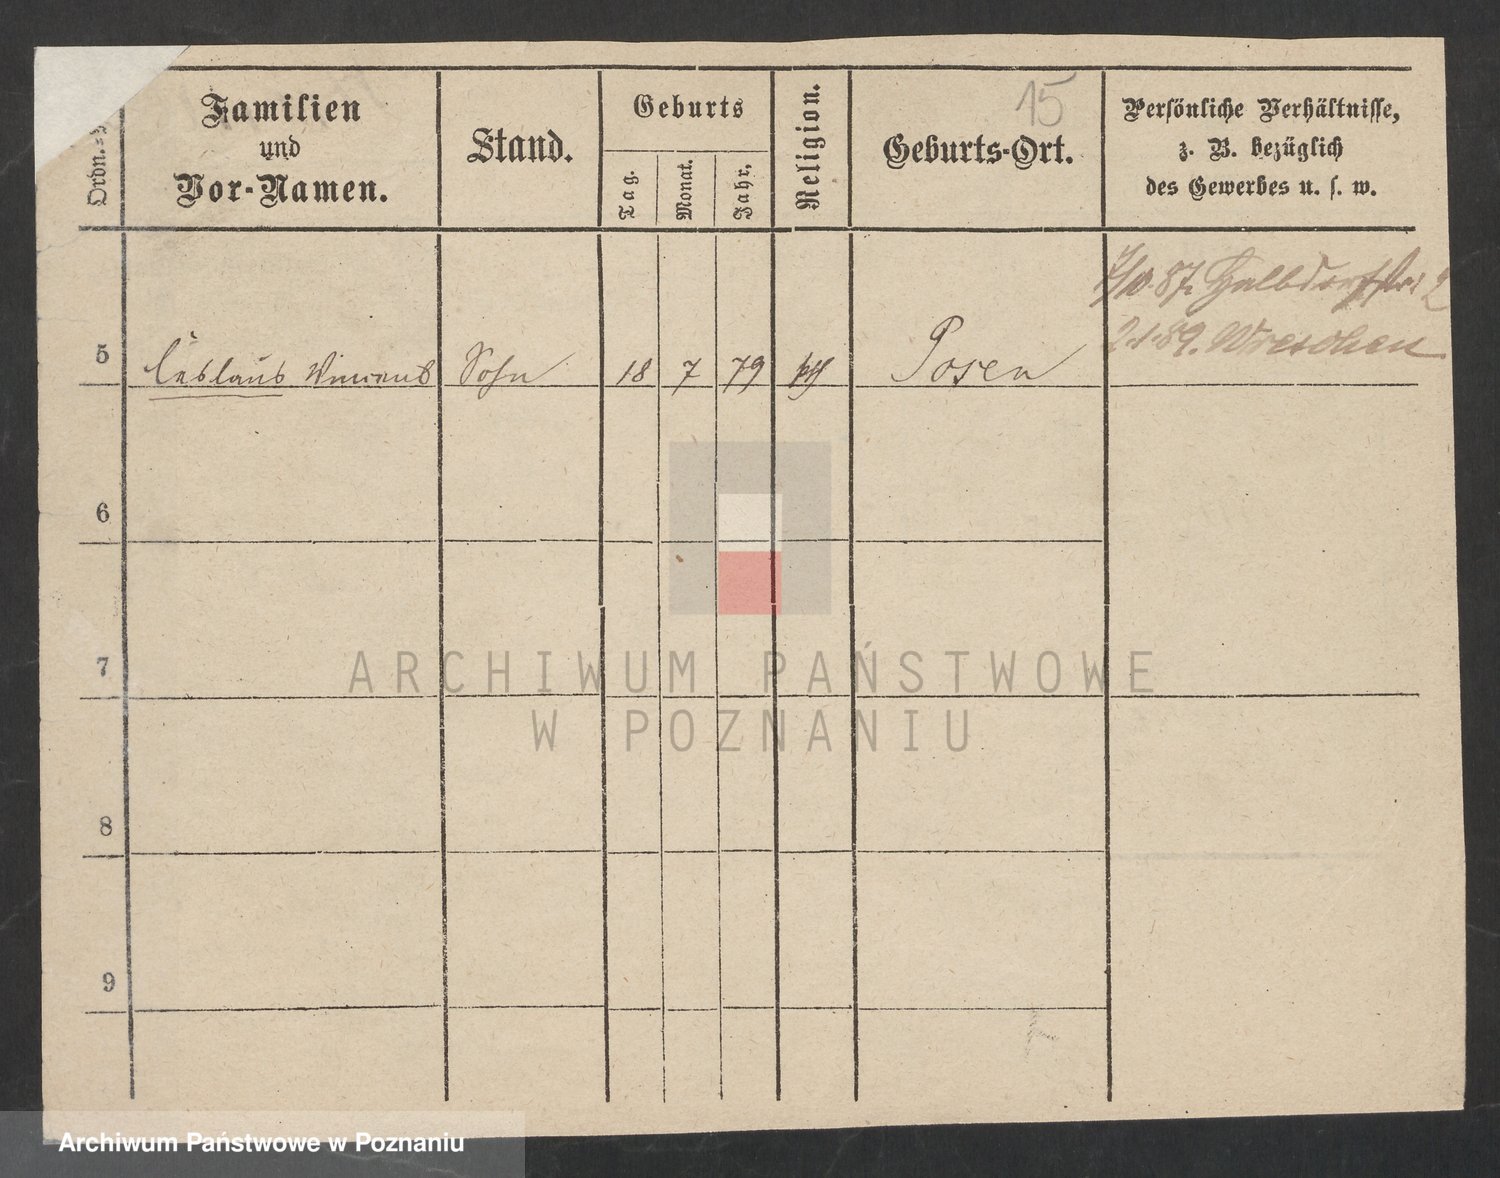 15
Ordn.=
Familien
und
Vor-Namen.
Stand.
Geburts
Tag.
Monat.
Jahr.
Religion.
Geburts-Ort.
Persönliche Verhältnisse,
z. B. bezüglich
des Gewerbes u. s. w.
7/10.87. Halbdorfstr. 2
2.1.89. Wreschen
5 Ceslaus Vincens Sohn 18 7 79 kth Posen
6
7
8
9
ARCHIWUM PAŃSTWOWE
W POZNANIU
Archiwum Państwowe w Poznaniu